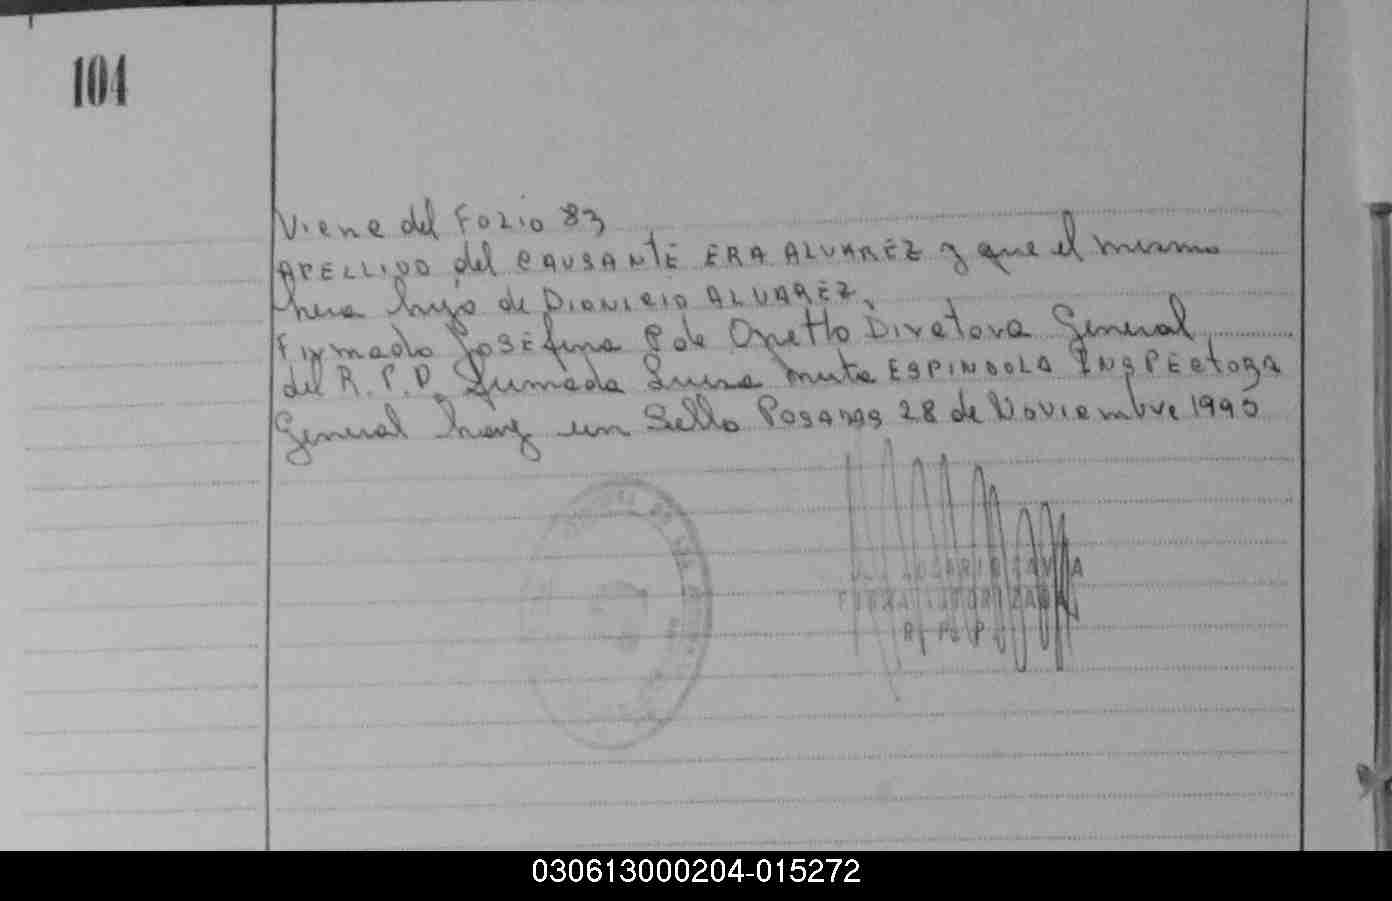 104
Viene del Folio 83
APELLIDO del CAUSANTE ERA ALVAREZ y que el mismo
hera hijo de DIONICIO ALVAREZ,
Firmado Josefina P de Onetto Diretora General
del R.P.P. firmada Luisa ESPINDOLA INSPEctora
General hay un Sello POSADAS 28 de Noviembre 1990
FIRMA AUTORIZADA
R. P. P.
030613000204-015272